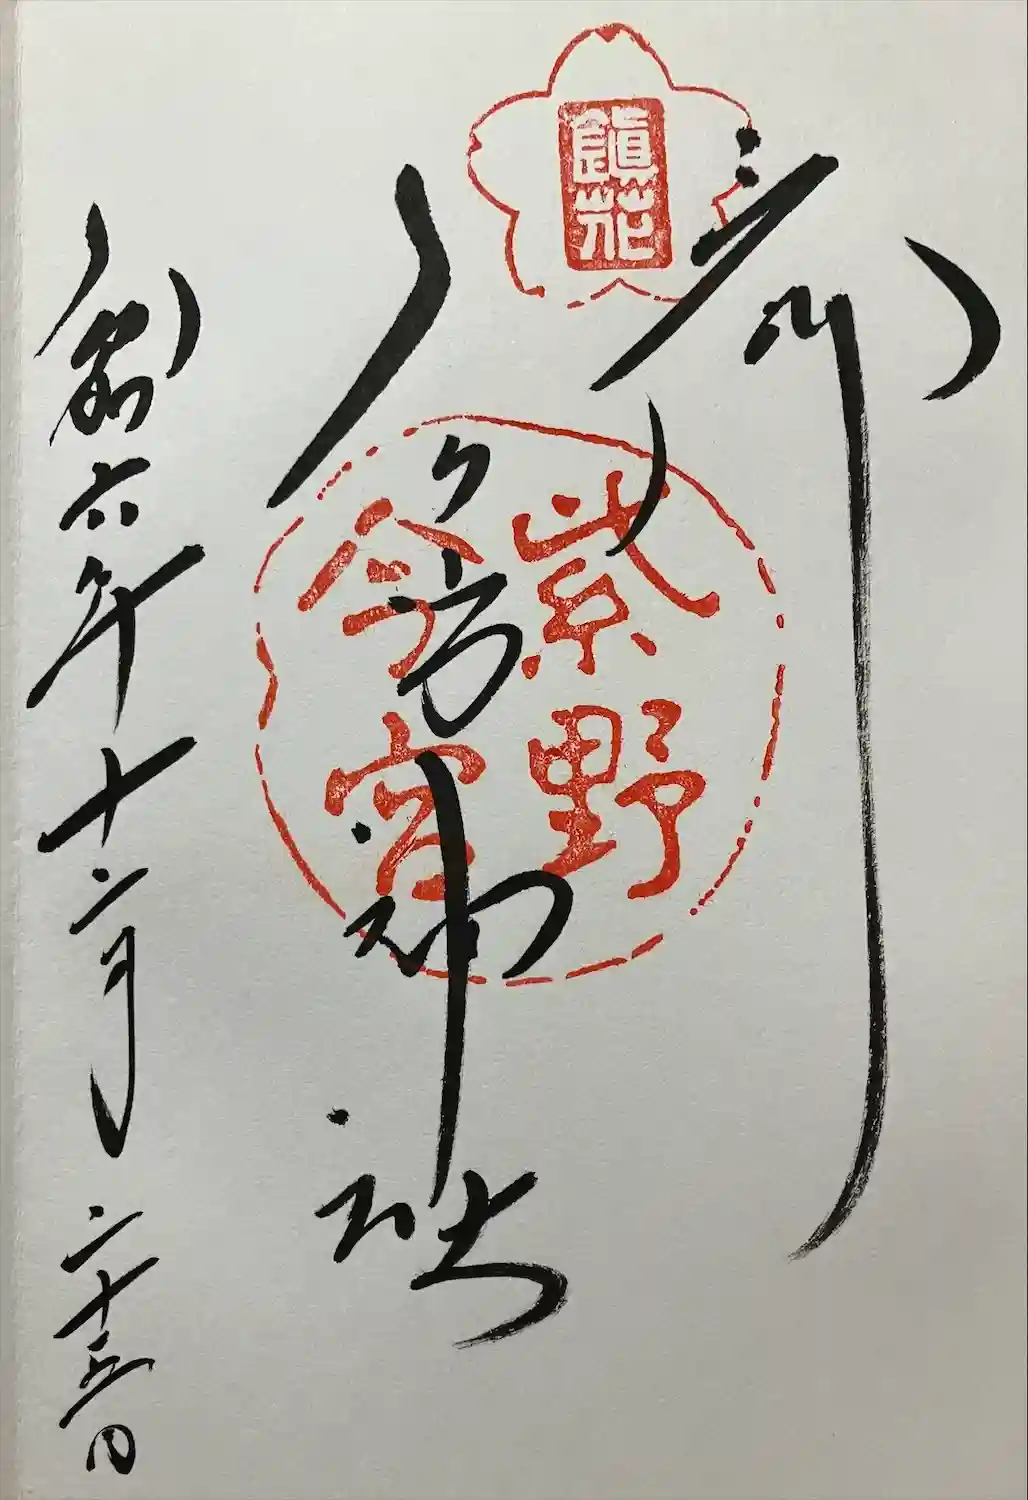 鎭花
紫野
今宮
今宮神社
令和六年十二月二十五日